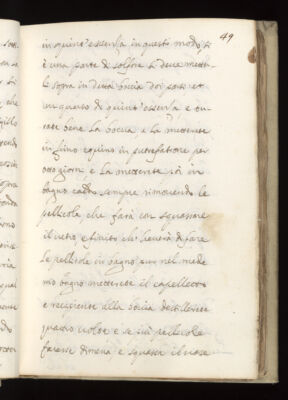 49
in quint'essenza in questo modo, si
è una parte di solfore si deve metter
le sopra in detta boccia doi parti et
un quarto di quint'essenza e ou
rate bene la boccia, e la metterete
in fimo equino in putrefatione per
otto giorni, e la metterete in
bagno caldo sempre rimovendo le
pellicole che farà con squassare
il vetro, e finito che haverà di fare
le pellicole in bagno, pur nel mede
mo bagno metterete il capelletto
e recipiente alla boccia destillerete
quattro volte e se più pellicole
facesse di mena, e squassa il vaso